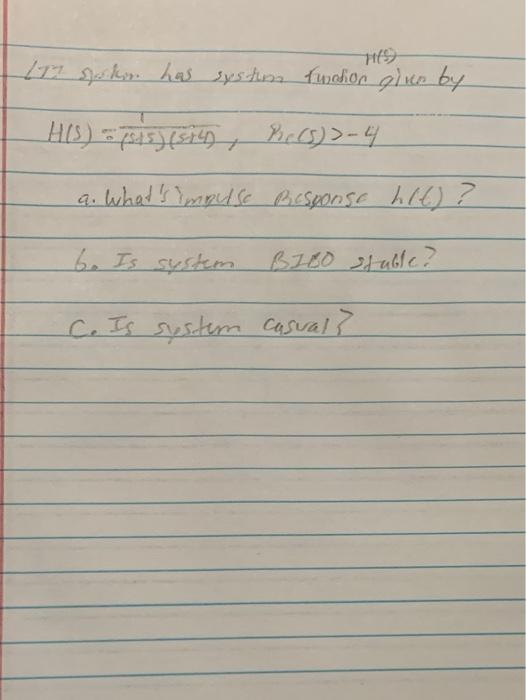 H(S)
LTI system has system function given by
H(S) = 1/(s+5)(s+4), Re(s) > -4
a. What's impulse Response h(t) ?
b. Is system BIBO stable?
C. Is system casual?